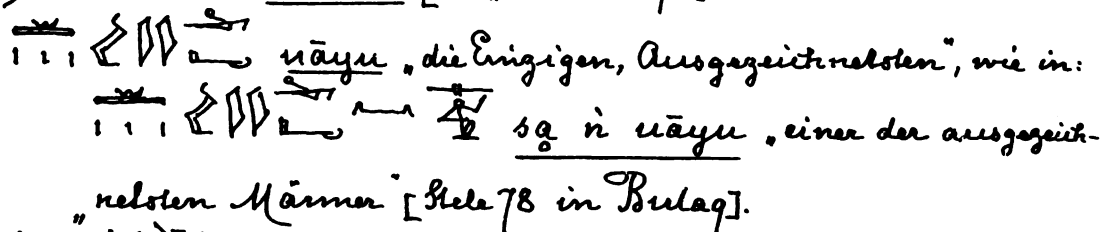 uāyu „die Einzigen, Ausgezeichnetsten", wie in:
sa̤ ǹ uāyu „einer der ausgezeich-
„netsten Männer" [Stele 78 in Bulaq].